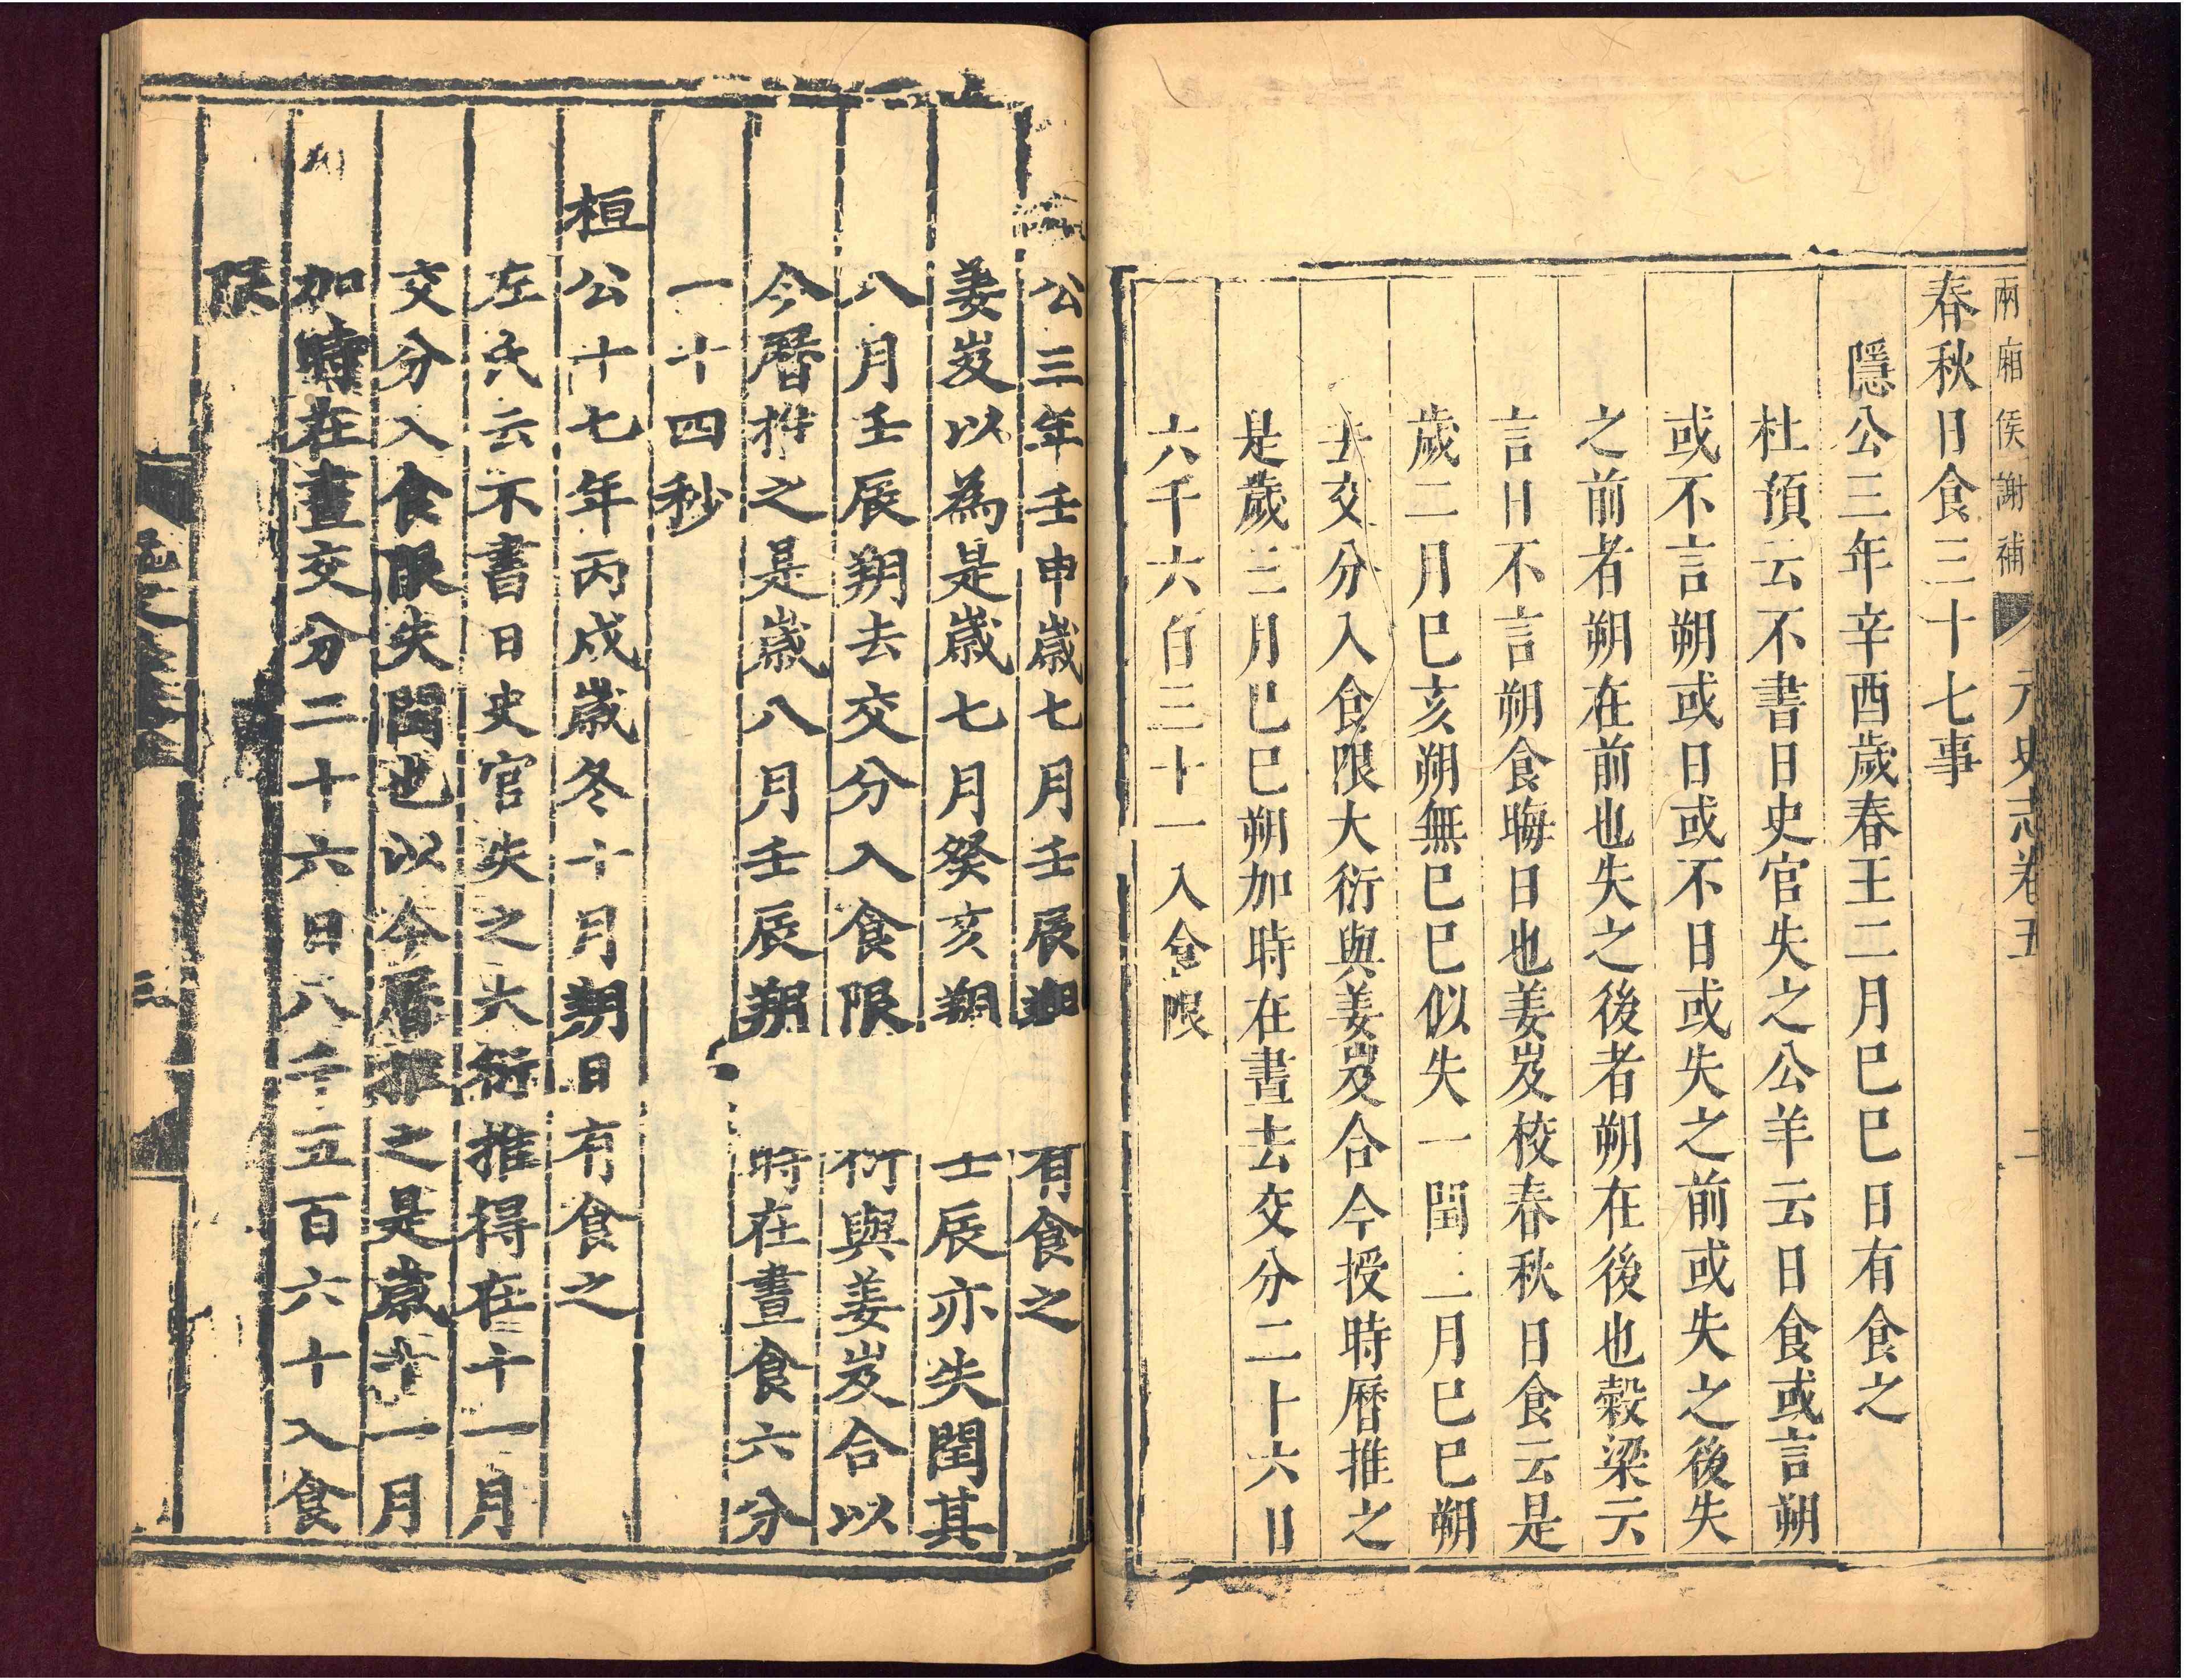 兩廂侯謝補 元史志卷五 二
春秋日食三十七事
隱公三年辛酉歲春王二月巳巳日有食之
杜預云不書日史官失之公羊云日食或言朔
或不言朔或日或不日或失之前或失之後失
之前者朔在前也失之後者朔在後也穀梁云
言日不言朔食晦日也姜岌校春秋日食云是
歲二月巳亥朔無巳巳似失一閏三月巳巳朔
去交分入食限大衍與姜岌合今授時曆推之
是歲三月巳巳朔加時在晝去交分二十六日
六千六百三十一入食限
公三年壬申歲七月壬辰朔 有食之
姜岌以為是歲七月癸亥朔 壬辰亦失閏其
八月壬辰朔去交分入食限 衍與姜岌合以
今曆推之是歲八月壬辰朔 時在晝食六分
一十四秒
桓公十七年丙戌歲冬十月朔日有食之
左氏云不書日史官失之大衍推得在十一月
交分入食限失閏也以今曆推之是歲十一月
加時在晝交分二十六日八千五百六十入食
限
三